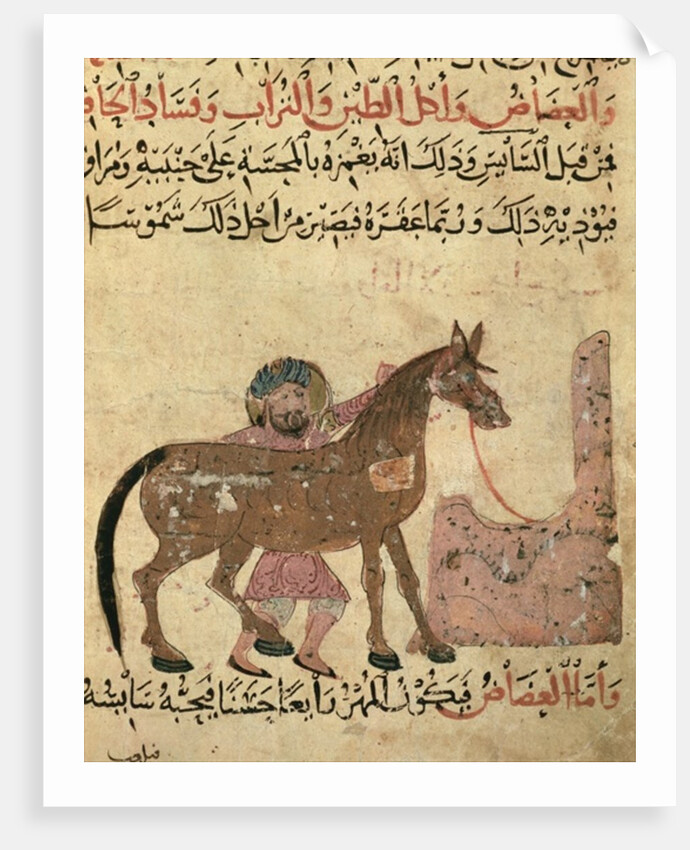 والعضاض وأكل الطين والتراب وفساد الحافر
فمن قبل السايس وذلك انه يغمزه بالمجسة على جنبيه ومراق
فيوذيه ذلك وربما عقره فيصير من اجل ذلك شموسا
وأما العضاض فيكون المهر رايعا حسنا فيحبه سايسه